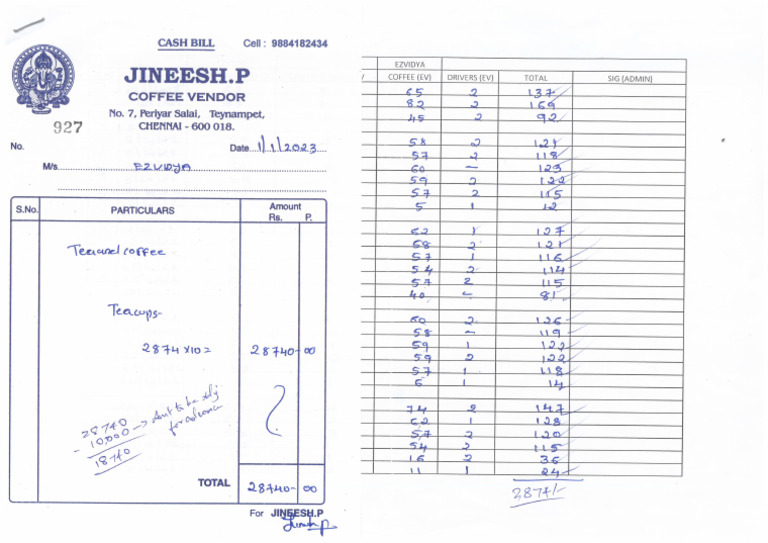 CASH BILL Cell : 9884182434
JINEESH.P
COFFEE VENDOR
No. 7, Periyar Salai, Teynampet,
CHENNAI - 600 018.
927
No. Date 1/1/2023
M/s EZVIDYA
S.No. PARTICULARS Amount
Rs. P.
Tea and coffee
Tea cups-
2874 x10= 28740-00
28740
- 10,000 → Amt to be adj
for advance
18740
TOTAL 28740-00
For JINEESH.P
Jineesh.P
EZVIDYA
COFFEE (EV) DRIVERS (EV) TOTAL SIG (ADMIN)
65 2 137
82 2 169
45 2 92
58 2 121
57 2 118
60 - 123
59 2 122
57 2 115
5 1 12
62 1 127
58 2 121
57 1 116
54 2 114
57 2 115
40 - 81
60 2 126
58 - 119
59 1 122
59 2 122
57 1 118
6 1 14
74 2 147
62 1 128
57 2 120
54 2 115
16 2 36
11 1 24
2874/-